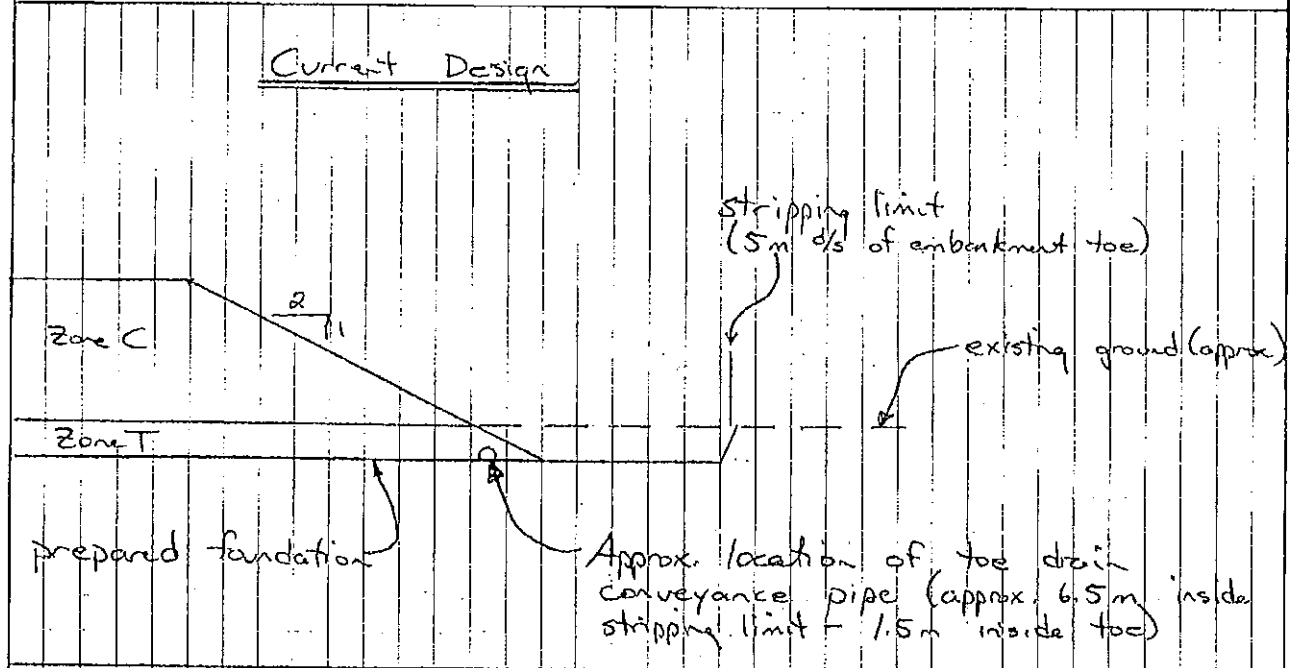 Current Design
stripping limit
(5m d/s of embankment toe)
2
1
Zone C
existing ground (approx)
Zone T
prepared foundation
Approx. location of toe drain
conveyance pipe (approx. 6.5m inside
stripping limit - 1.5m inside toe)